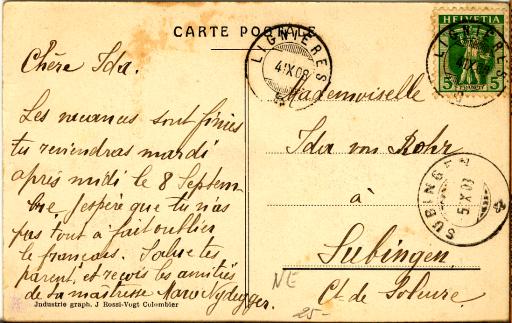 CARTE POSTALE
HELVETIA
5 5
LIGNIÈRES
4.X.09
LIGNIÈRES
Chère Ida.
Les vacances sont finies
tu reviendras mardi
après midi le 8 Septem
bre, j'espère que tu n'as
pas tout à fait oublier
le français. Salue tes
parent, et reçois les amitiés
de ta maîtresse Marie Nydegger.
Mademoiselle
Ida von Rohr
à
Subingen
Ct. de Soleure.
SUBINGEN
5.X.09
NE
25-
Industrie graph. J Rossi-Vogt Colombier